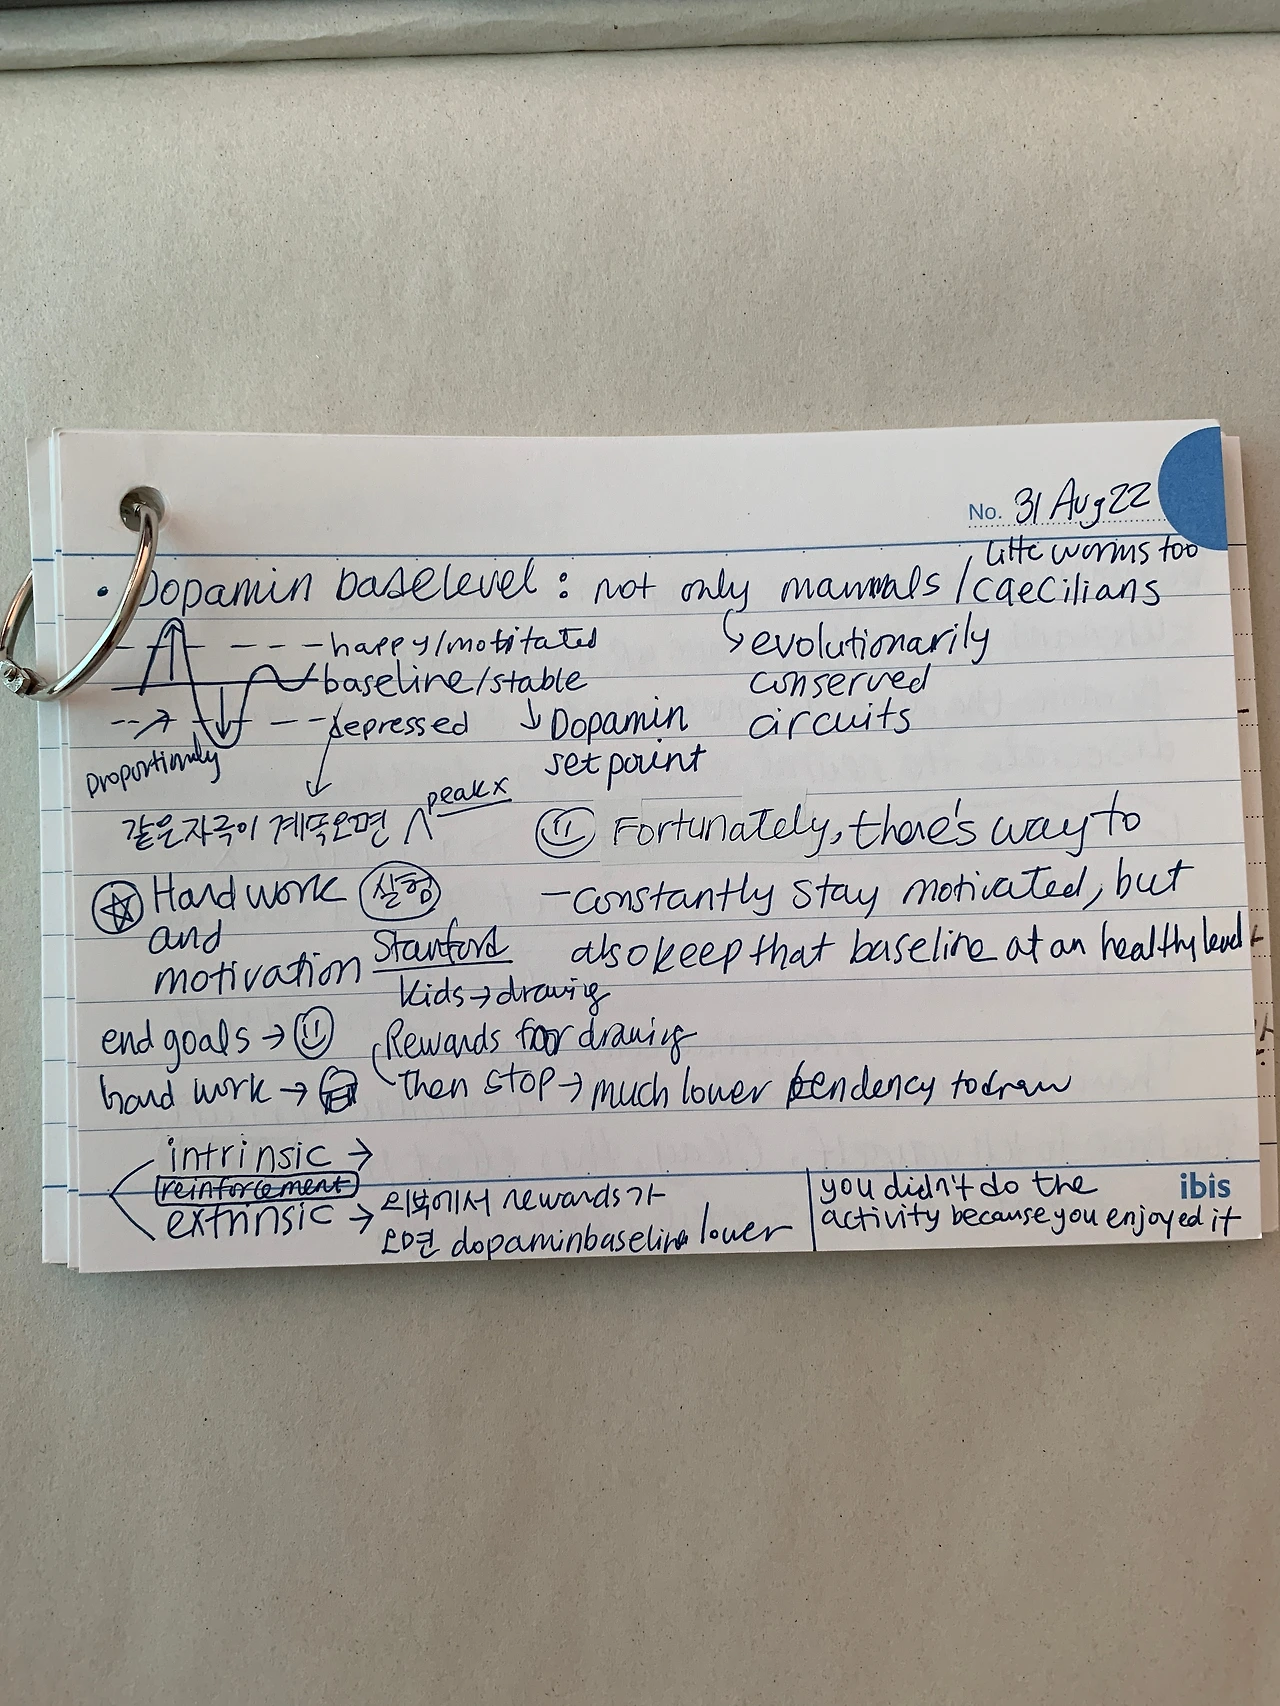 No. 31 Aug 22
little worms too
• Dopamin baselevel : not only mammals / caecilians
happy/motitated
evolutionarily
baseline/stable
conserved
depressed
↓ Dopamin
circuits
proportionly
set point
peak x
같은 자극이 계뚝오면
Fortunately, there's way to
Hard work
실험
- constantly stay motivated, but
and
Stanford
also keep that baseline at an healthy level
motivation
kids → drawing
end goals →
Rewards for drawing
hard work →
then stop → much lower tendency to draw
intrinsic →
reinforcement
extrinsic → 외부에서 rewards가
오면 dopaminbaseline lower
you didn't do the
activity because you enjoyed it
ibis